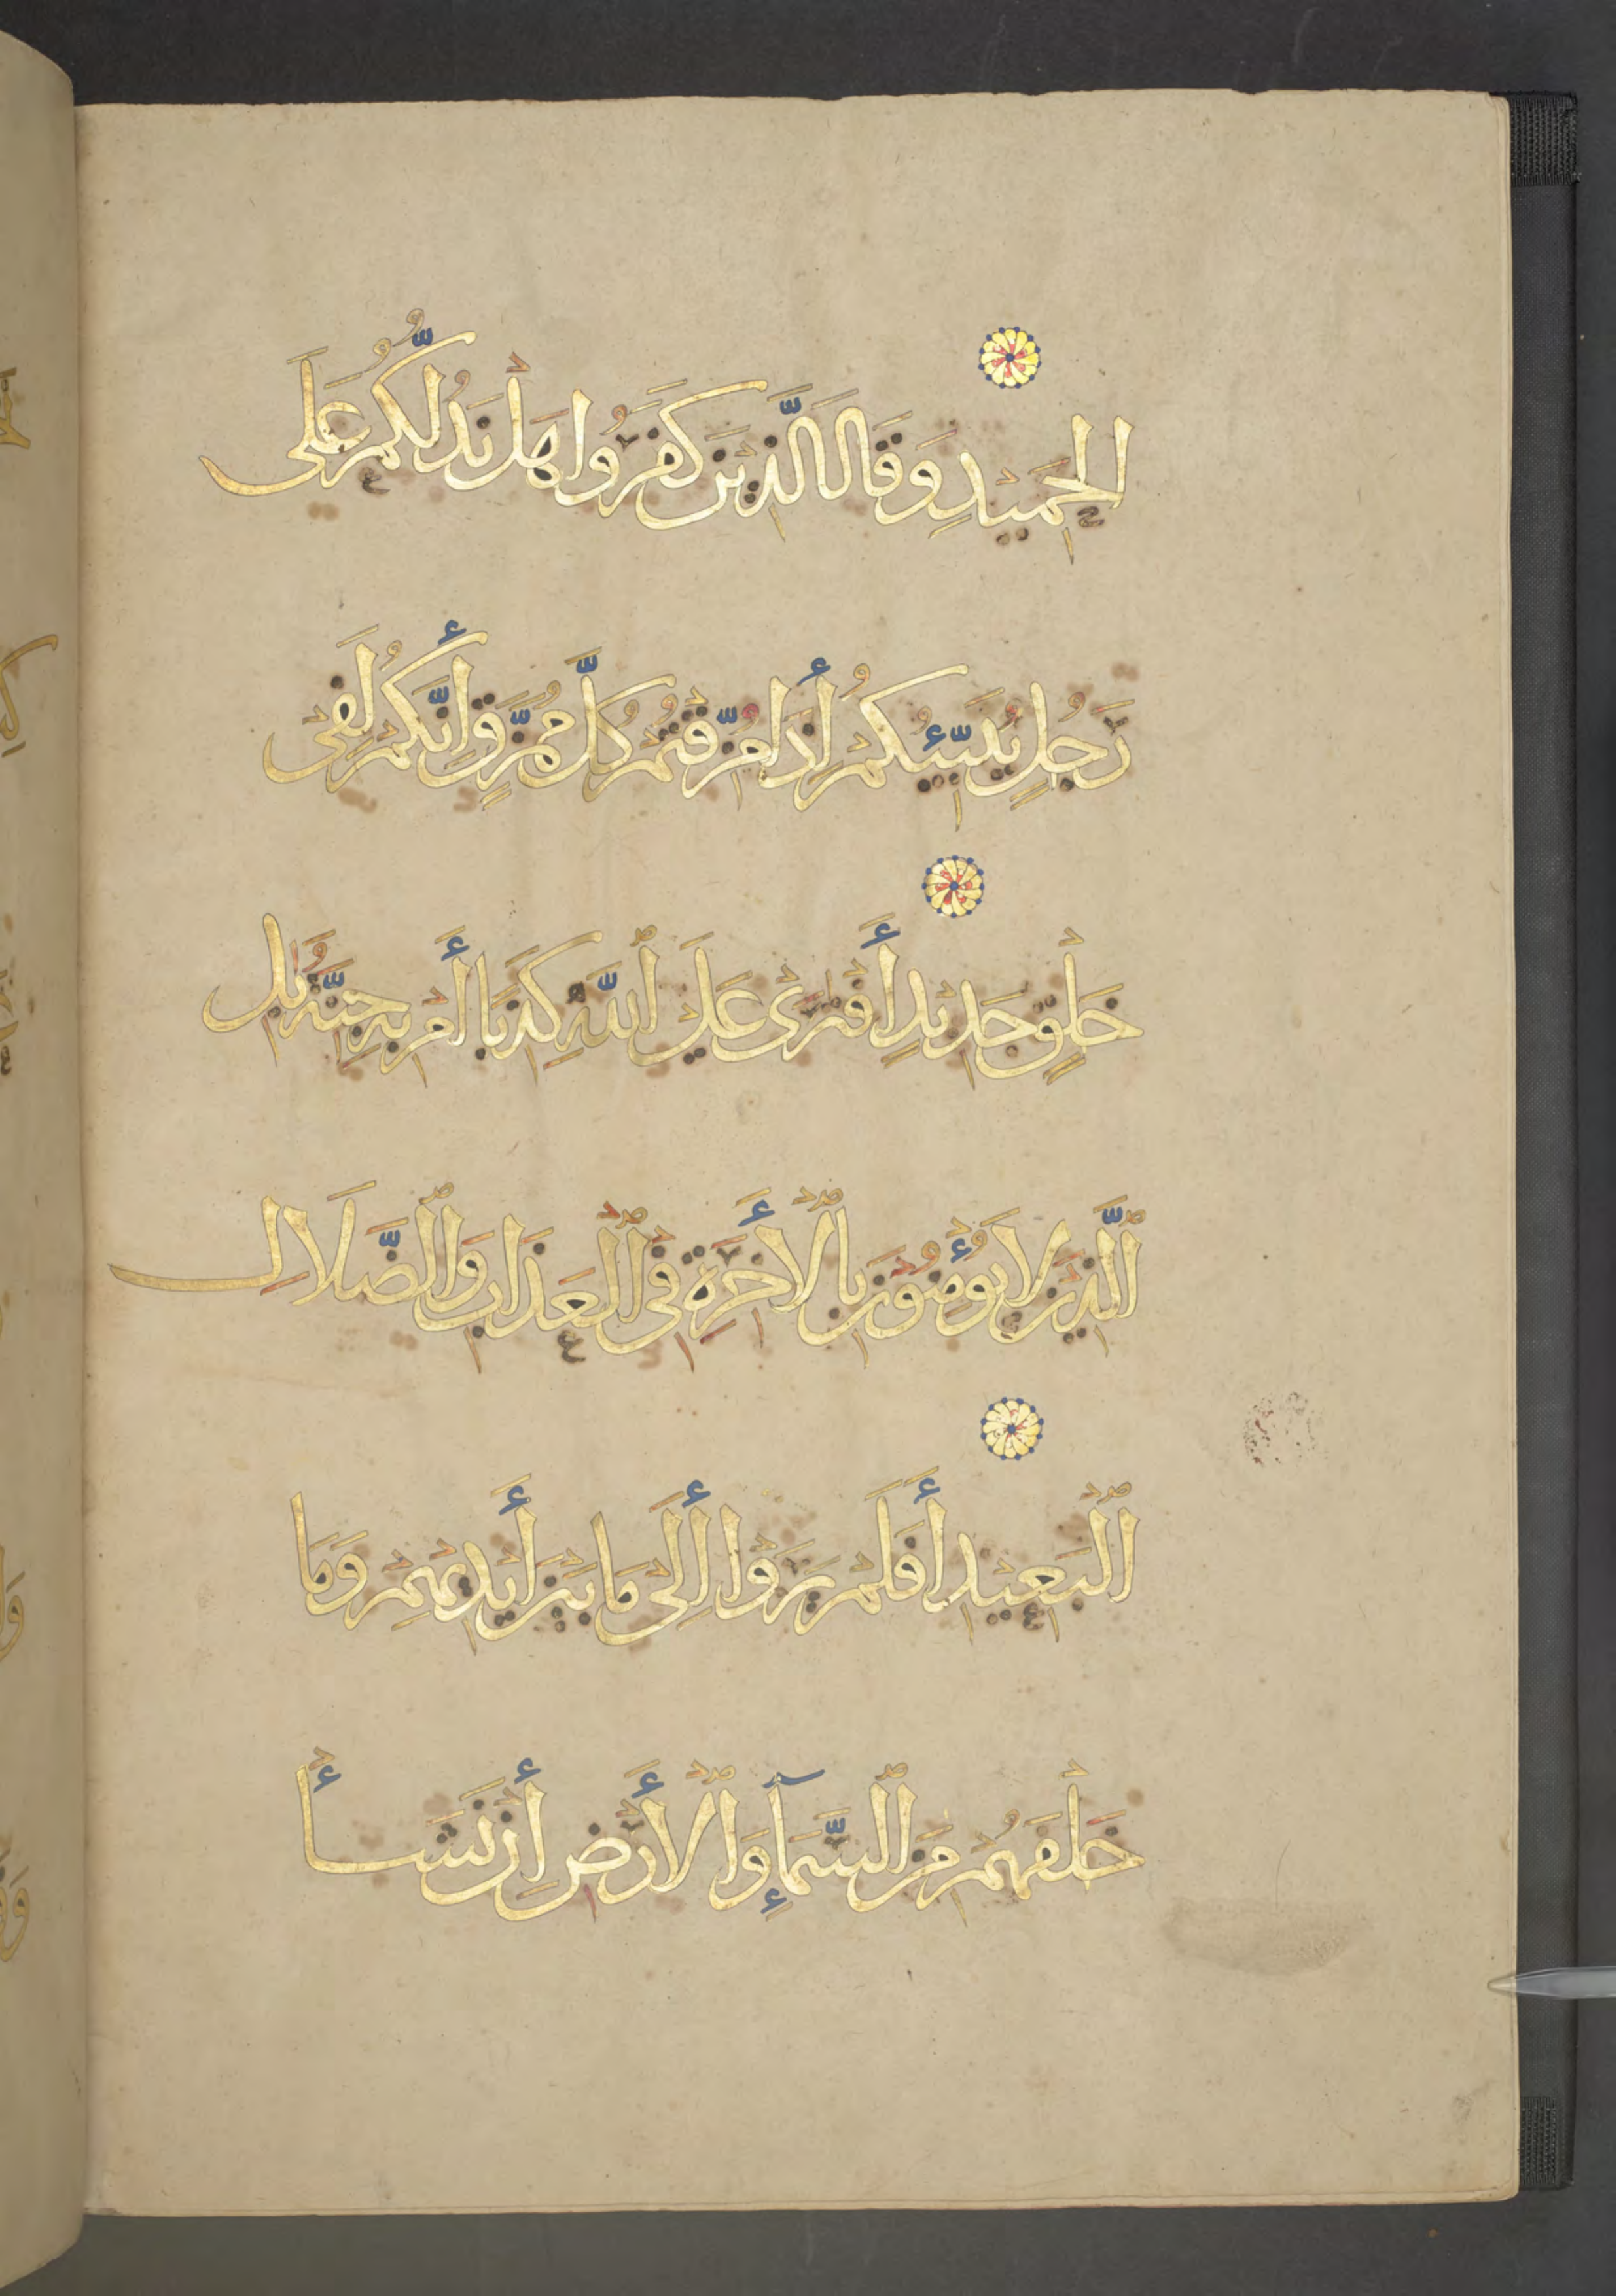 الْحَمِيدِ وَقَالَ الَّذِينَ كَفَرُوا هَلْ نَدُلُّكُمْ عَلَى
رَجُلٍ يُنَبِّئُكُمْ إِذَا مُزِّقْتُمْ كُلَّ مُمَزَّقٍ إِنَّكُمْ لَفِي
خَلْقٍ جَدِيدٍ أَفْتَرَى عَلَى ٱللَّهِ كَذِبًا أَم بِهِ جِنَّةٌ بَلِ
ٱلَّذِينَ لَا يُؤْمِنُونَ بِٱلْأَخِرَةِ فِي ٱلْعَذَابِ وَٱلضَّلَالِ
ٱلْبَعِيدِ أَفَلَمْ يَرَوْا إِلَى مَا بَيْنَ أَيْدِيهِمْ وَمَا
خَلْفَهُم مِنَ ٱلسَّمَآءِ وَٱلْأَرْضِ إِن نَشَأْ